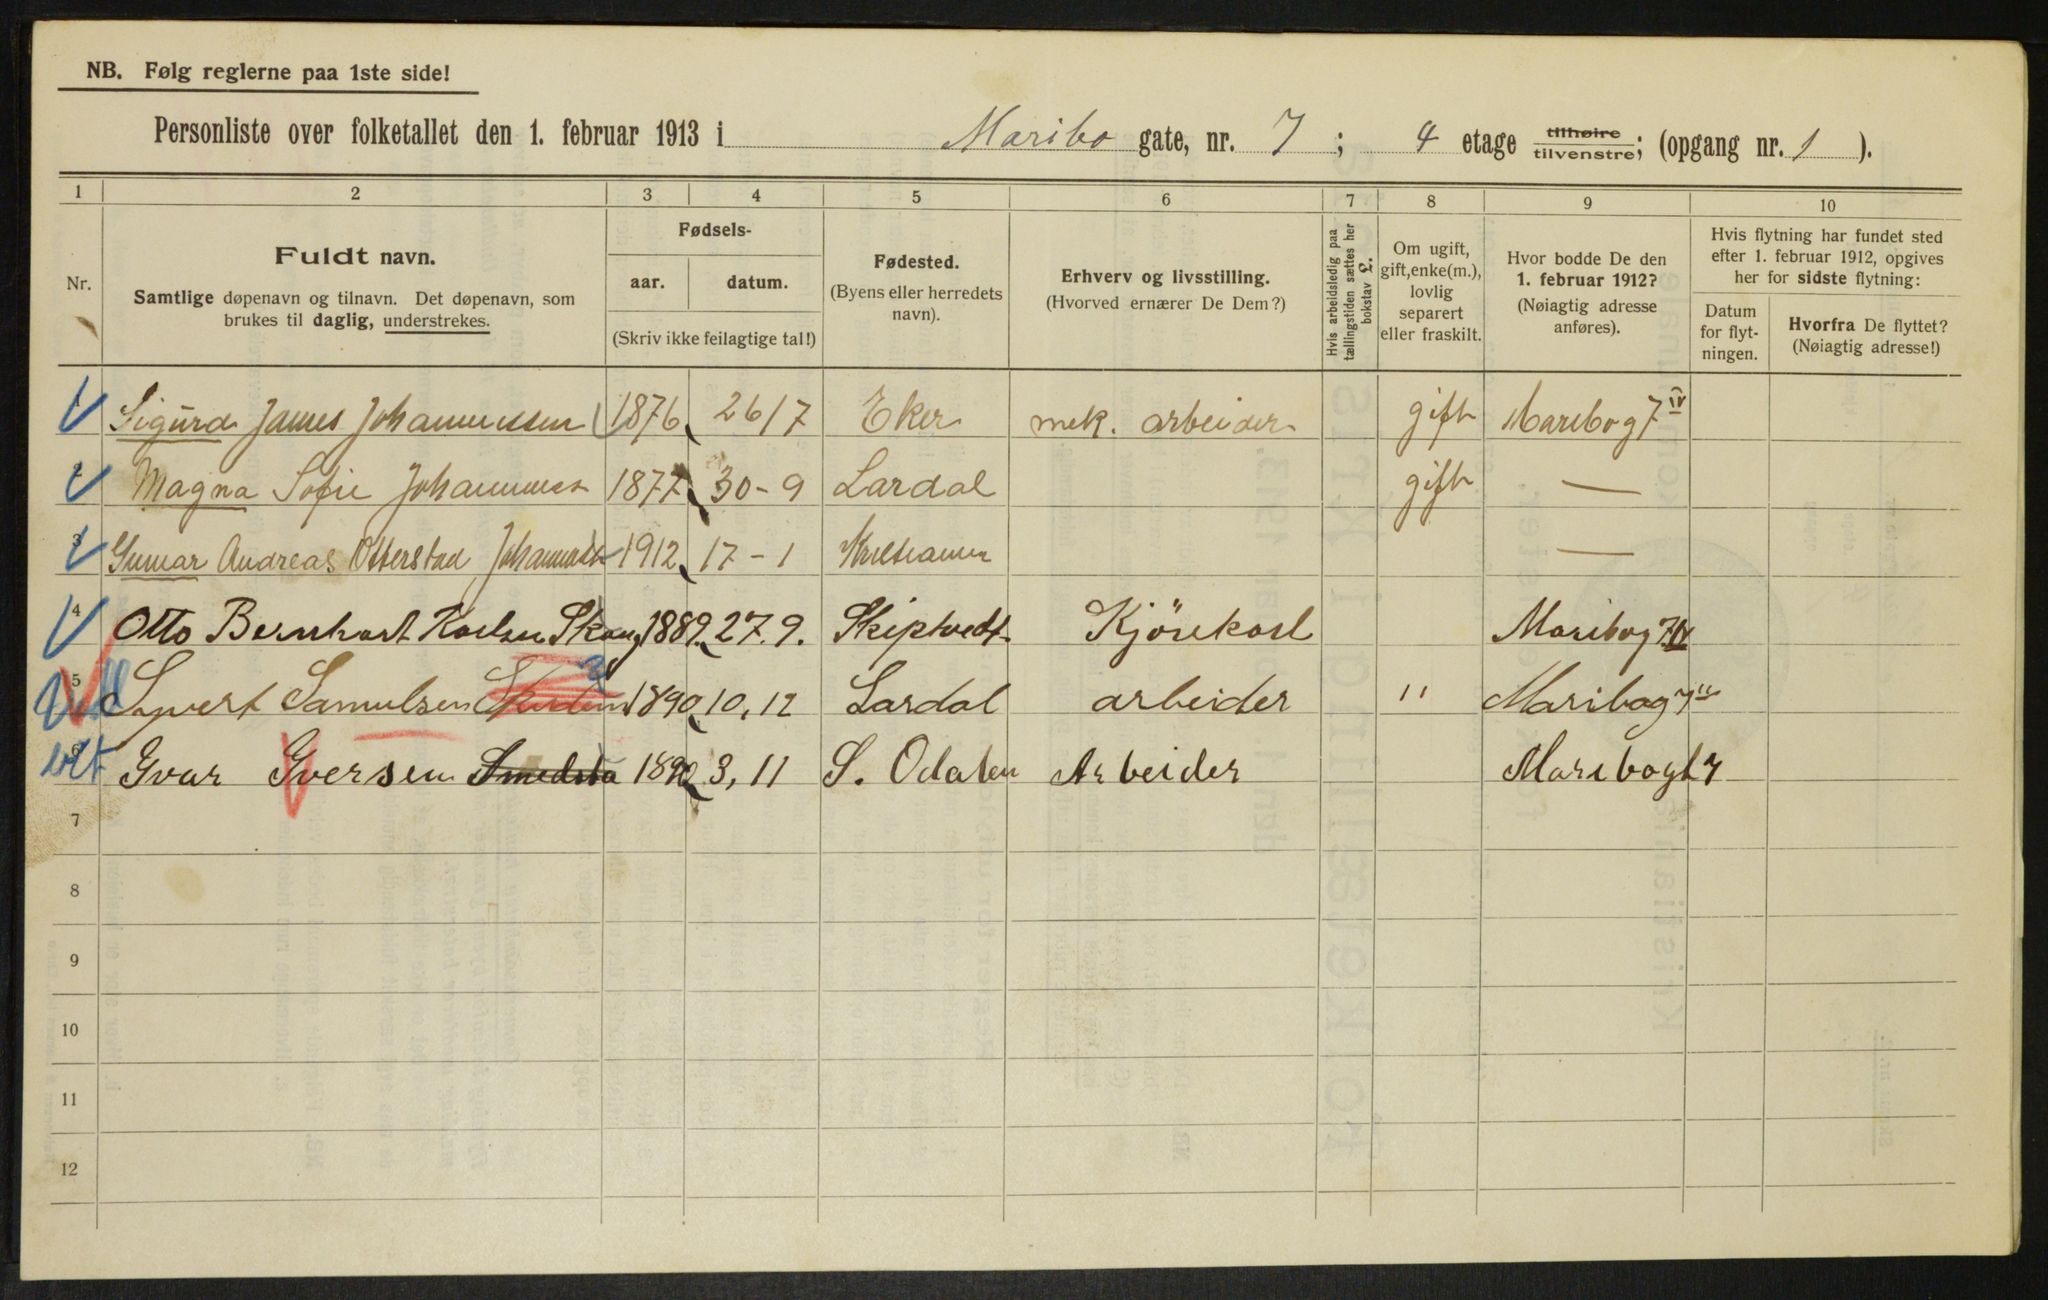 NB. Følg reglerne paa 1ste side!
Personliste over folketallet den 1. februar 1913 i Maribo gate, nr. 7 ; 4 etage tilhøire tilvenstre; (opgang nr. 1 ).
1 2 3 4 5 6 7 8 9 10
Nr.
Fuldt navn.
Samtlige døpenavn og tilnavn. Det døpenavn, som
brukes til daglig, understrekes.
Fødsels-
aar. datum.
(Skriv ikke feilagtige tal!)
Fødested.
(Byens eller herredets
navn).
Erhverv og livsstilling.
(Hvorved ernærer De Dem?)
Hvis arbeidsledig paa
tællingstiden sættes her
bokstav L.
Om ugift,
gift, enke(m.),
lovlig
separert
eller fraskilt.
Hvor bodde De den
1. februar 1912?
(Nøiagtig adresse
anføres).
Hvis flytning har fundet sted
efter 1. februar 1912, opgives
her for sidste flytning:
Datum
for flyt-
ningen.
Hvorfra De flyttet?
(Nøiagtig adresse!)
1 Sigurd James Johannessen 1876 26/7 Eker mek. arbeider gift Maribog 7 IV
2 Magna Sofie Johannes 1877 30-9 Lardal gift —
3 Gunnar Andreas Otterstad 1912 17-1 —
4 Otto Bernhart Karlsen Skaug 1889 27.9. Skiptvedt Kjørekarl Maribog 7 IV
5 Syvert Samulsen 1890 10,12 Lardal arbeider " Maribog 7
6 Ivar Iversen Smedsta 1890 3,11 S. Odalen Arbeider Maribogt 7
7
8
9
10
11
12